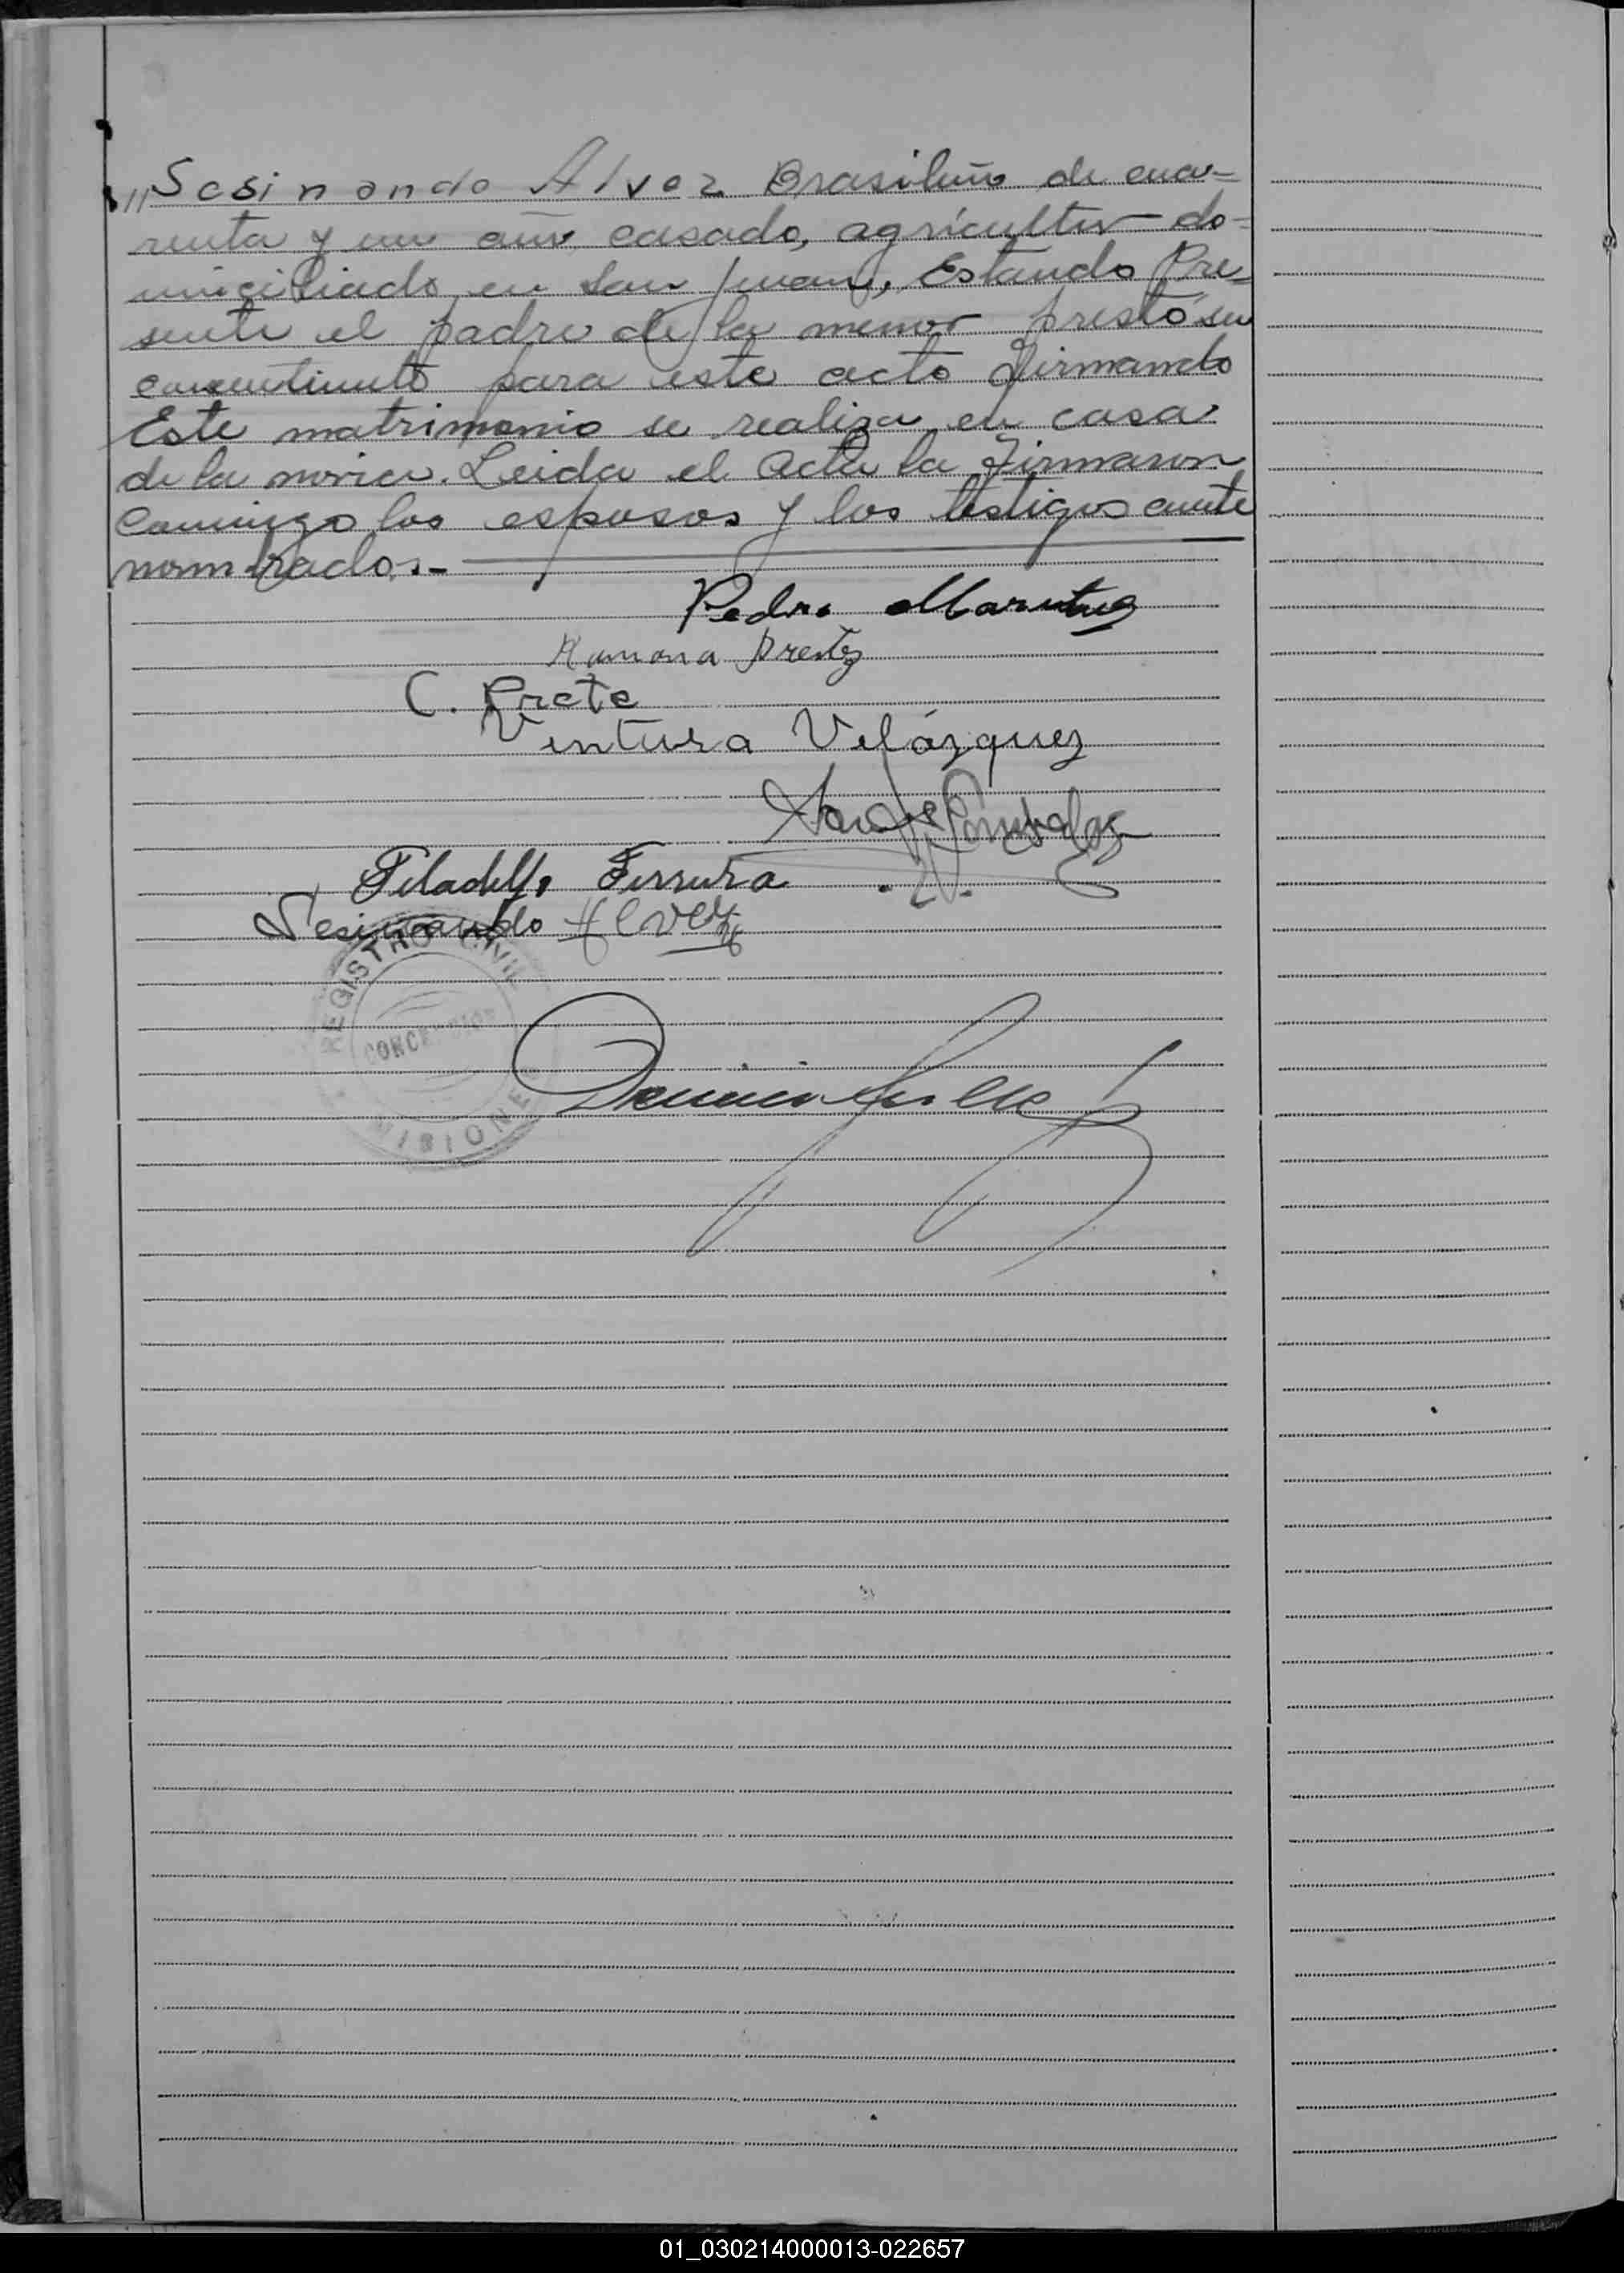 "Sesinando Alvez Brasileño de cua-
renta y un año, casado, agricultor do-
miciliado en San Juan, Estando Pre-
sente el padre de la menor prestó su
consentimito para este acto firmando
Este matrimonio se realiza en casa
de la novia. Leida el Acta la Firmaron
Conmigo los esposos y los testigos ante
nombrados.-
Pedro Martinez
Ramona Prestez
C. Prete
Ventura Velázquez
Gonzalez
Filadelfo Ferrera
Sesinando Alvez
REGISTRO CIVIL
CONCEPCION
MISIONES
01_030214000013-022657